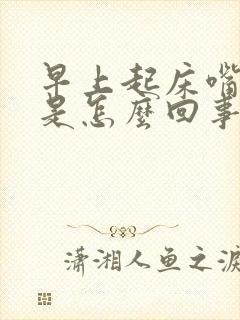 早上起床嘴
是怎麼回事
瀟湘人鱼之淚